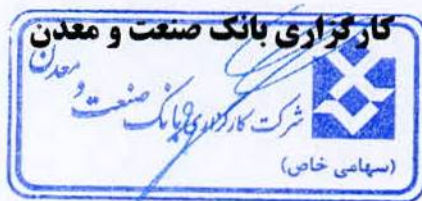 کارگزاری بانک صنعت و معدن
شرکت کارگزاری بانک صنعت و معدن
(سهامی خاص)